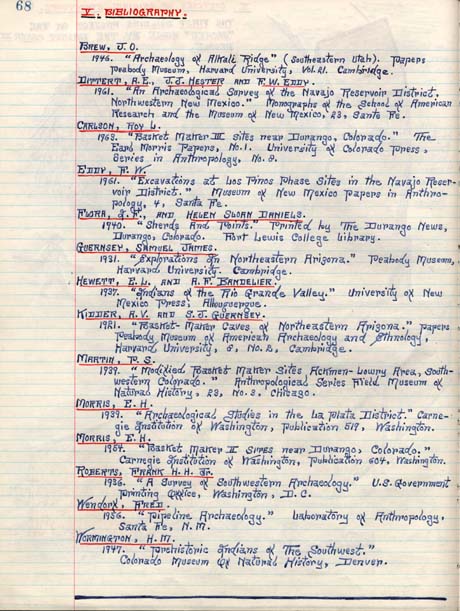 68
V. BIBLIOGRAPHY.
BREW, J.O.
1946. "Archaeology of Alkali Ridge" (Southeastern Utah). Papers
Peabody Museum, Harvard University, Vol. 21. Cambridge.
DITTERT, A.E., J.J. HESTER AND F.W. EDDY.
1961. "An Archaeological Survey of the Navajo Reservoir District,
Northwestern New Mexico." Monographs of the School of American
Research and the Museum of New Mexico, 23, Santa Fe.
CARLSON, ROY L.
1963. "Basket Maker III Sites near Durango, Colorado." The
Earl Morris Papers, No. 1. University of Colorado Press,
Series in Anthropology, No. 8.
EDDY, F.W.
1961. "Excavations at Los Pinos Phase Sites in the Navajo Reser-
voir District." Museum of New Mexico Papers in Anthro-
pology, 4, Santa Fe.
FLORA, I.F., AND HELEN SLOAN DANIELS.
1940. "Sherds And Points. Printed by The Durango News,
Durango, Colorado. Fort Lewis College Library.
GUERNSEY, SAMUEL JAMES.
1931. "Explorations In Northeastern Arizona." Peabody Museum,
Harvard University. Cambridge.
HEWETT, E.L. AND A.F. BANDELIER.
1937. "Indians of the Rio Grande Valley." University of New
Mexico Press, Albuquerque.
KIDDER, A.V. AND S.J. GUERNSEY.
1921. "Basket-Maker Caves of Northeastern Arizona." Papers
Peabody Museum of American Archaeology and Ethnology,
Harvard University, 8, No. 2, Cambridge.
MARTIN, P.S.
1939. "Modified Basket Maker Sites, Ackmen-Lowry Area, South-
western Colorado." Anthropological Series Field Museum of
Natural History, 23, No. 3. Chicago.
MORRIS, E.H.
1939. "Archaeological Studies in the La Plata District." Carne-
gie Institution of Washington, Publication 519, Washington.
MORRIS, E.H.
1954. "Basket Maker II Sites near Durango, Colorado."
Carnegie Institution of Washington, Publication 604, Washington.
ROBERTS, FRANK H.H. Jr.
1936. "A Survey of Southwestern Archaeology." U.S. Government
Printing Office, Washington, D.C.
Wendorf, FRED.
1956. "Pipeline Archaeology." Laboratory of Anthropology,
Santa Fe, N.M.
WORMINGTON, H.M.
1947. "Prehistoric Indians of The Southwest."
Colorado Museum of Natural History, Denver.